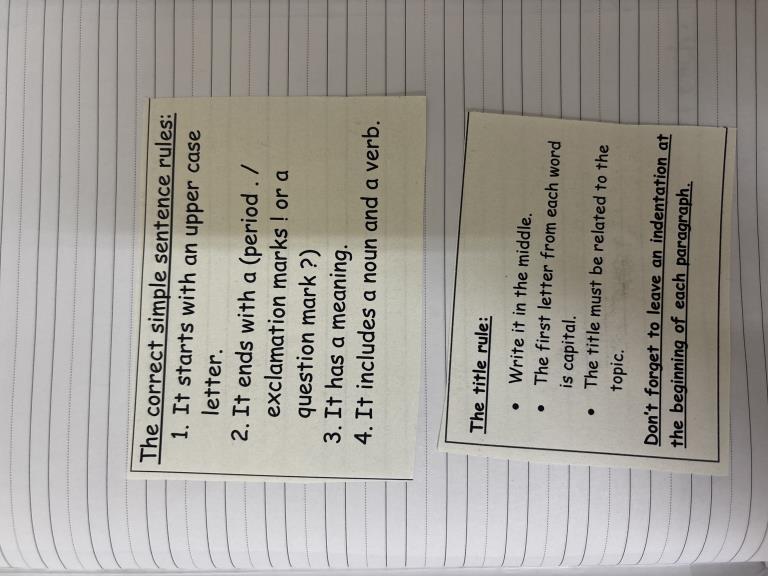 The correct simple sentence rules:
1. It starts with an upper case
letter.
2. It ends with a (period . /
exclamation marks ! or a
question mark ?)
3. It has a meaning.
4. It includes a noun and a verb.
The title rule:
• Write it in the middle.
• The first letter from each word
is capital.
• The title must be related to the
topic.
Don't forget to leave an indentation at
the beginning of each paragraph.